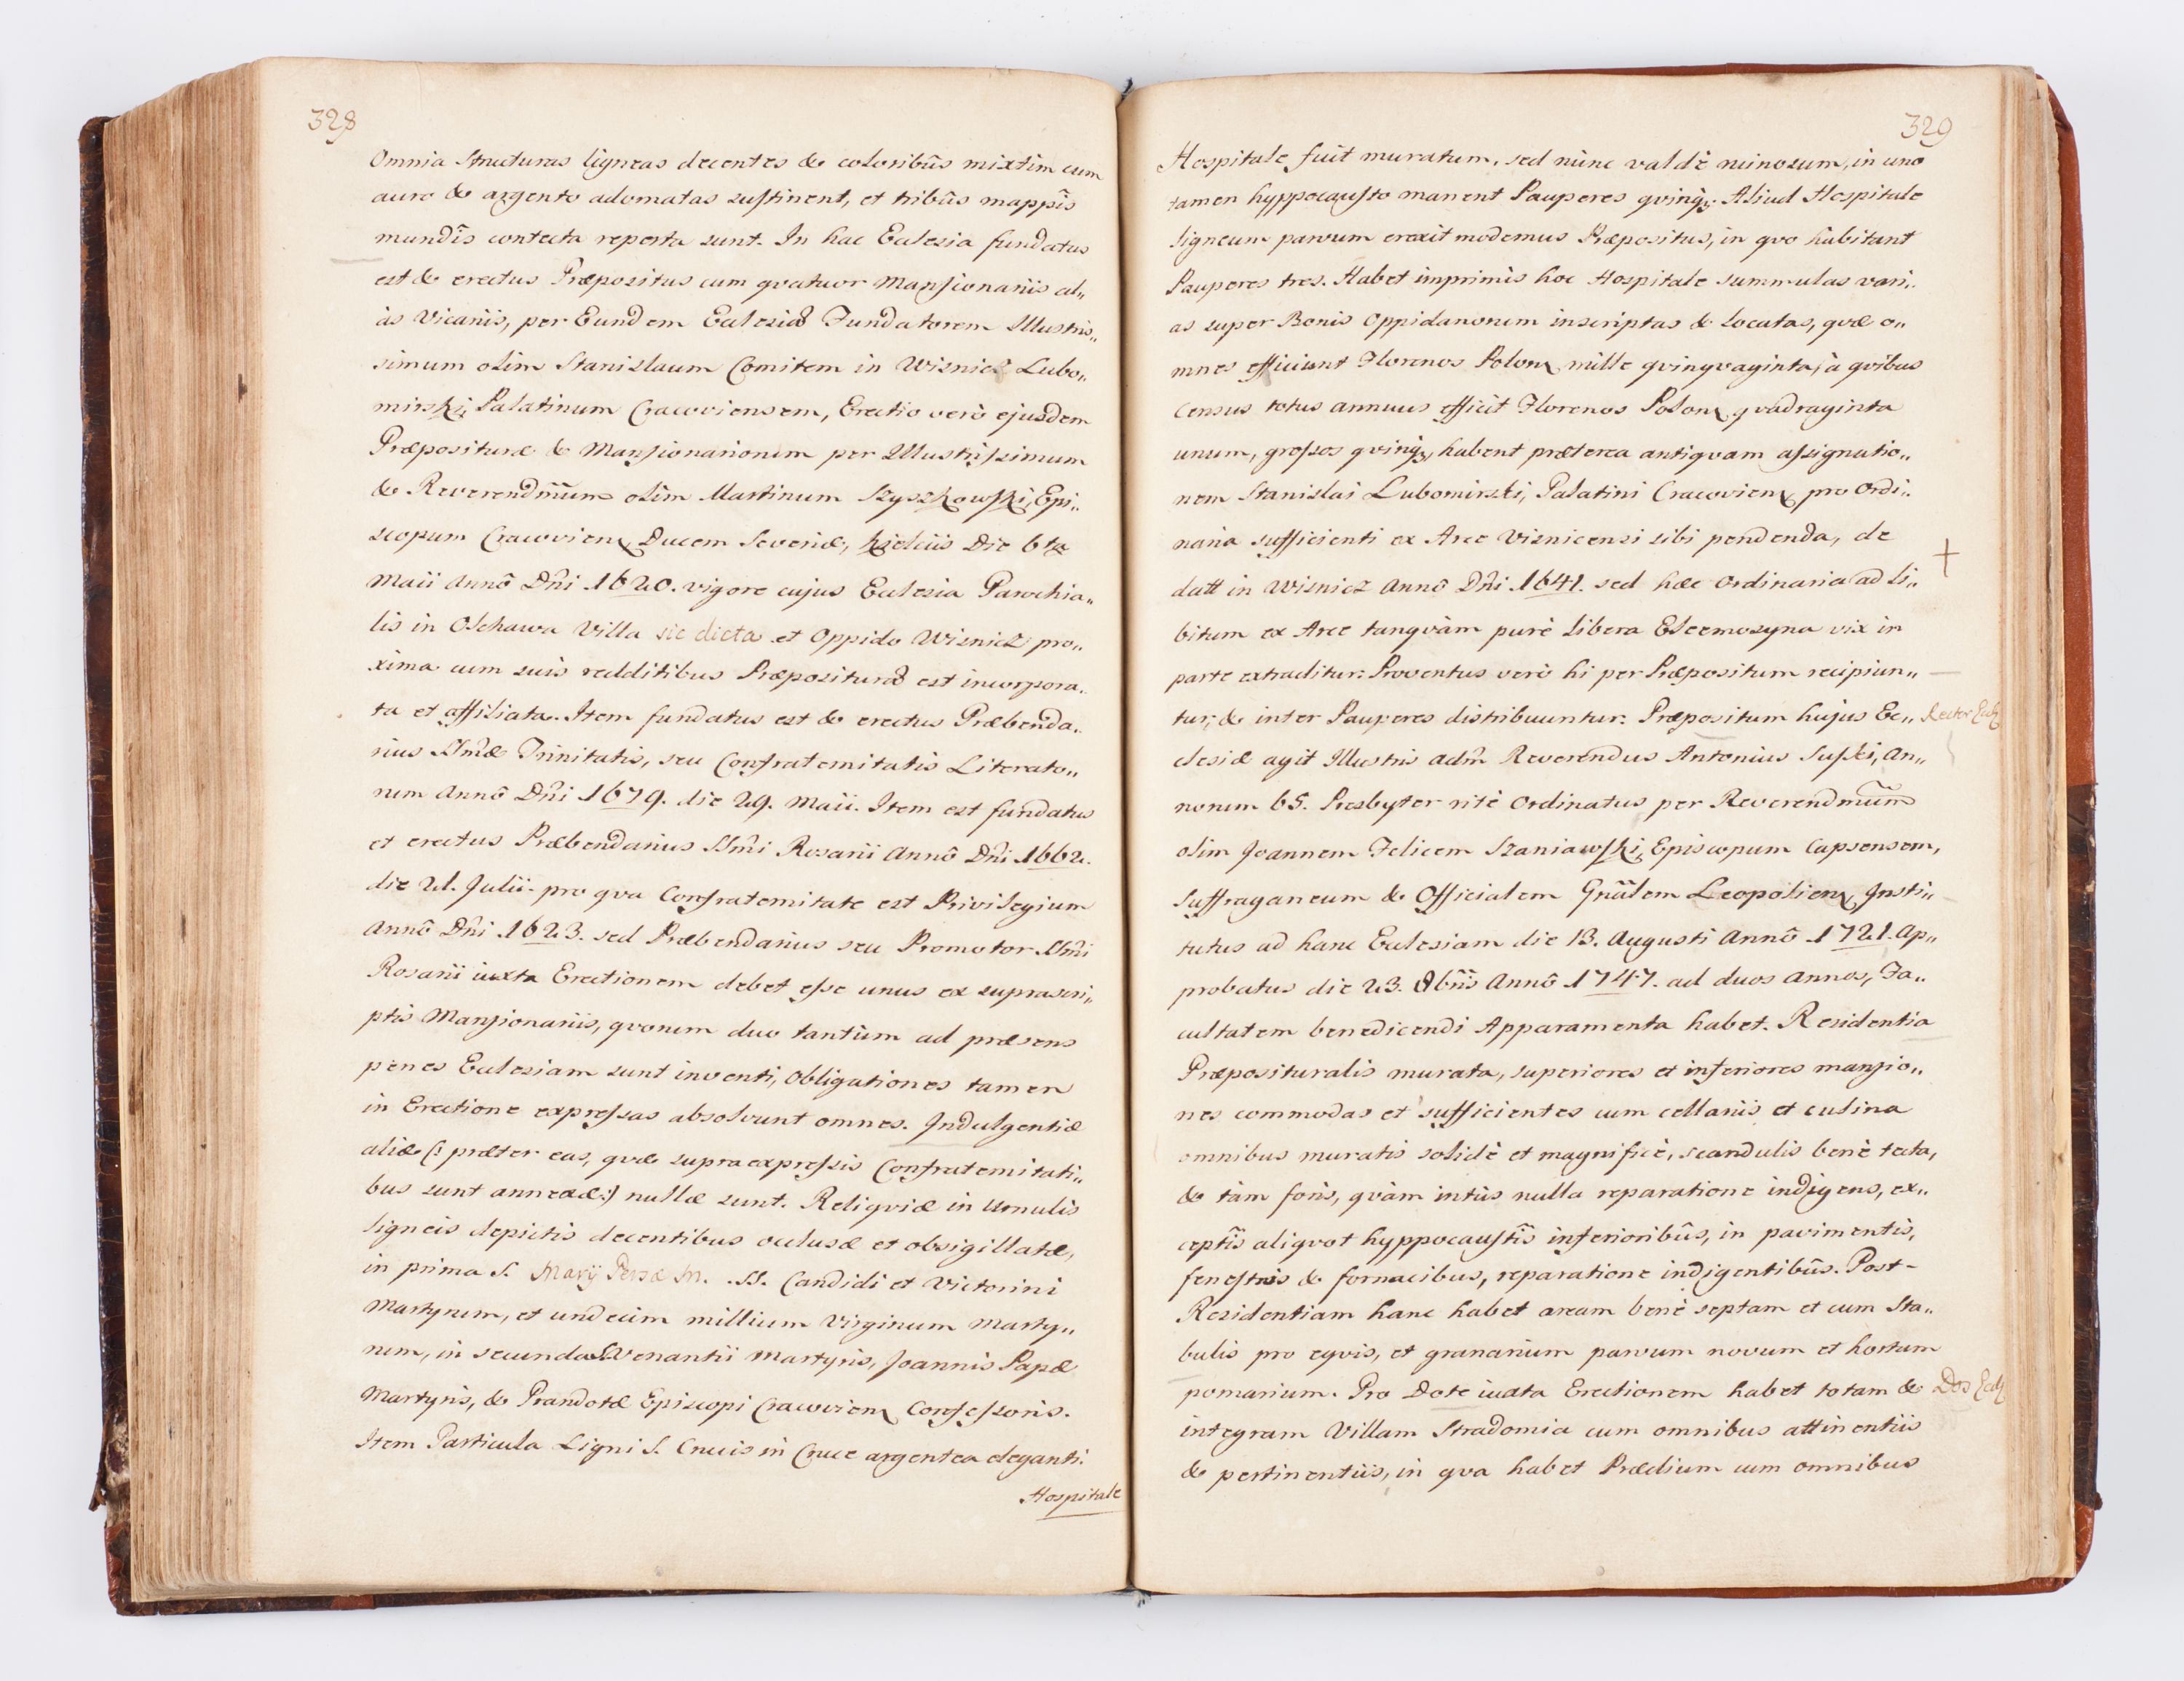 328
Omnia Structuras ligneas decentes & coloribûs mixtim cum
auro & argento adornatas sustinent, et tribûs mappîs
mundîs contecta reperta sunt. In hac Ecclesia fundatus
est & erectus Præpositus cum qvatuor Mansionariis al„
iàs Vicariis, per Eundem Ecclesiæ Fundatorem Illustris„
simum olim Stanislaum Comitem in Wisnicz Lubo„
mirski, Palatinum Cracoviensem, Erectio verò ejusdem
Præposituræ & Mansionariorum per Illustrissimum
& Reverendmũm olim Martinum Szyszkowski, Epi„
scopum Cracovien, Ducem Severiæ, Kielciis Die 6ta
Maii Annô Dñi 1620. vigore cujus Ecclesia Parochia„
lis in Olchawa Villa sic dicta et Oppido Wisnicz pro„
xima cum suis redditibus Præposituræ est incorpora„
ta et affiliata. Item fundatus est & erectus Præbenda„
rius SSmæ Trinitatis, seu Confraternitatis Literato„
rum Annô Dñi 1679. die 29. Maii. Item est fundatus
et erectus Præbendarius SSmi Rosarii Annô Dñi 1662.
die 21. Julii. pro qva Confraternitate est Privilegium
Annô Dñi 1623. sed Præbendarius seu Promotor SSmi
Rosarii iuxta Erectionem debet esse unus ex suprascri„
ptis Mansionariis, qvorum duo tantùm ad præsens
penes Ecclesiam sunt inventi, obligationes tamen
in Erectione expressas absolvunt omnes. Indulgentiæ
aliæ (: præter eas, qvæ supraexpressis Confraternitati„
bus sunt annexæ:) nullæ sunt. Reliqviæ in Urnulis
ligneis depictis decentibus occlusæ et obsigillatæ,
in prima S. Marij Persæ M. SS. Candidi et Victorini
Martyrum, et undecim millium Virginum Marty„
rum, in secunda S. Venantii Martyris, Joannis Papæ
Martyris, & Prandotæ Episcopi Cracovien Confessoris.
Item Particula Ligni S. Crucis in Cruce argentea eleganti.
Hospitale
329
Hospitale fuit muratum, sed nunc valdè ruinosum, in uno
tamen hyppocausto manent Pauperes qvinqz. Aliud Hospitale
ligneum parvum erexit modernus Præpositus, in qvo habitant
Pauperes tres. Habet imprimis hoc Hospitale summulas vari„
as super Bonis Oppidanorum inscriptas & locatas, qvæ o„
mnes efficiunt Florenos Polon mille qvinqvaginta, à qvibus
Census totus annuus efficit Florenos Polon qvadraginta
unum, grossos qvinqz, habent præterea antiqvam assignatio„
nem Stanislai Lubomirski, Palatini Cracovien, pro Ordi„
naria sufficienti ex Arce Visnicensi sibi pendenda, de
datt in Wisnicz Annô Dñi 1641. sed hæc Ordinaria ad li„
bitum ex Arce tanqvàm purè libera Eleemosyna vix in
parte extraditur: Proventus verò hi per Præpositum recipiun„
tur, & inter Pauperes distribuuntur. Præpositum hujus Ec„
Rector Eccl
clesiæ agit Illustris adm̃ Reverendus Antonius Suski, An„
norum 65. Presbyter ritè Ordinatus per Reverendmũm
olim Joannem Felicem Szaniawski, Episcopum Capsensem,
Suffraganeum & Officialem Gnãlem Leopolien, Insti„
tutus ad hanc Ecclesiam die 13. Augusti Annô 1721. Ap„
probatus die 23. 8bris Annô 1747. ad duos Annos, Fa„
cultatem benedicendi Apparamenta habet. Residentia
Præposituralis murata, superiores et inferiores mansio„
nes commodas et sufficientes cum cellariis et culina
omnibus muratis solidè et magnificè, scandulis benè tecta,
& tàm foris, qvàm intùs nulla reparatione indigens, ex„
ceptîs aliqvot hyppocaustîs inferioribûs, in pavimentis,
fenestris & fornacibus, reparatione indigentibûs. Post-
Residentiam hanc habet aream benè septam et cum Sta„
bulis pro eqvis, et granarium parvum novum et hortum
pomarium. Pro Dote iuxta Erectionem habet totam &
Dos Eccl
integram Villam Stradomia cum omnibus attinentiis
& pertinentiis, in qva habet Prædium cum omnibus